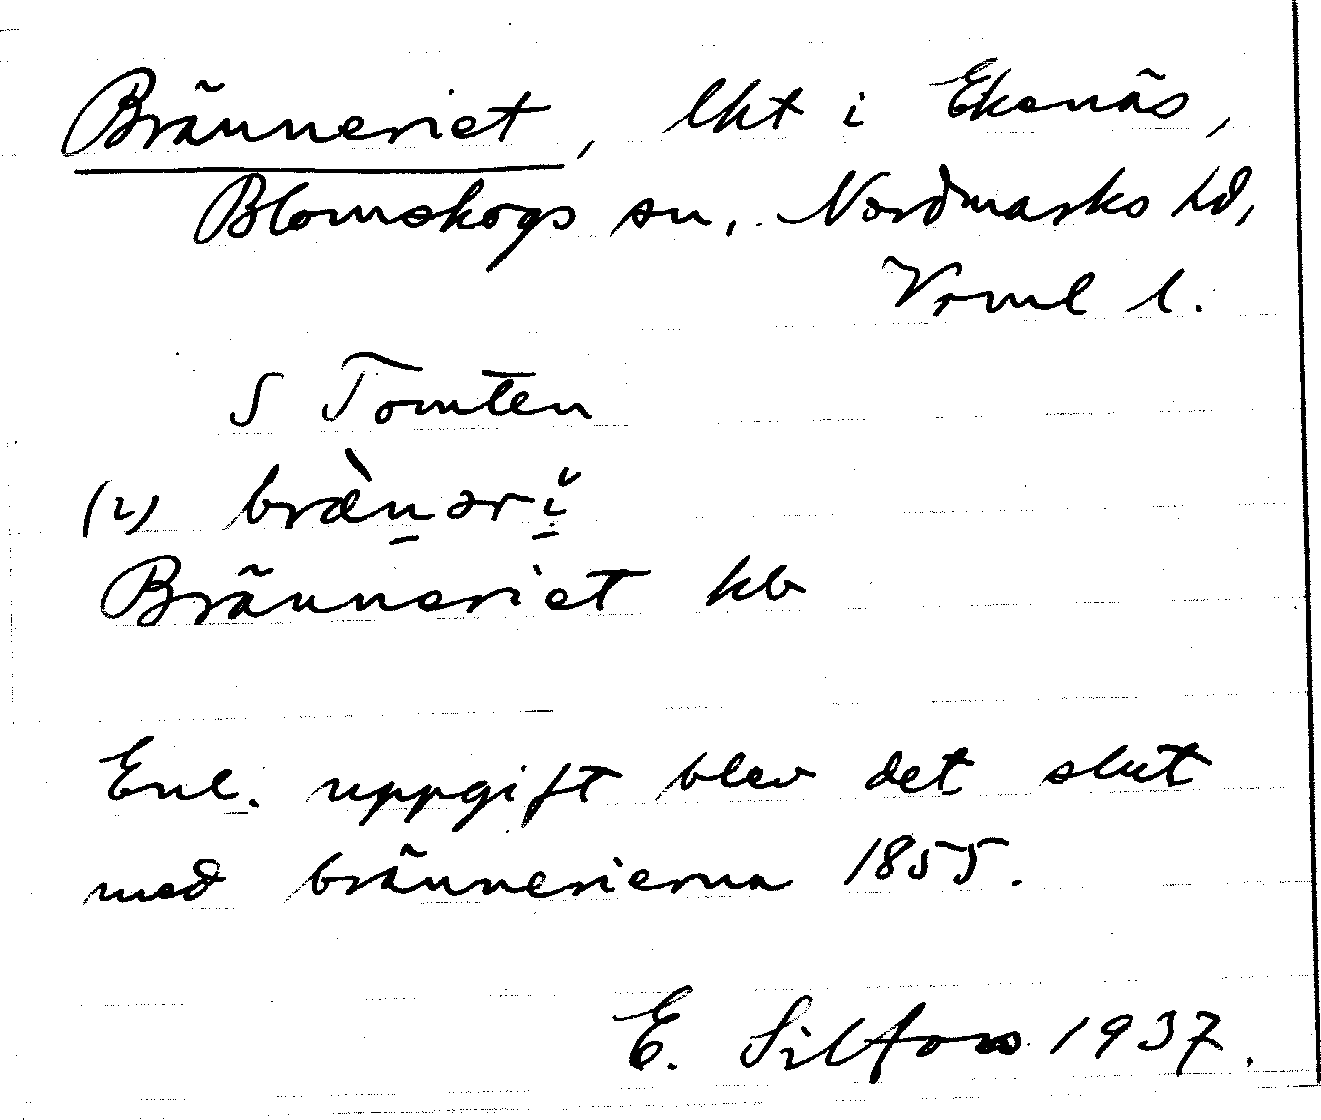 Bränneriet, lht i Ekenäs,
Blomskogs sn, Nordmarks hd,
Vrml l.
S Tomten
bræ̀nəri
Bränneriet kb
Enl. uppgift blev det slut
med brännerierna 1855.
E. Silfors 1937.